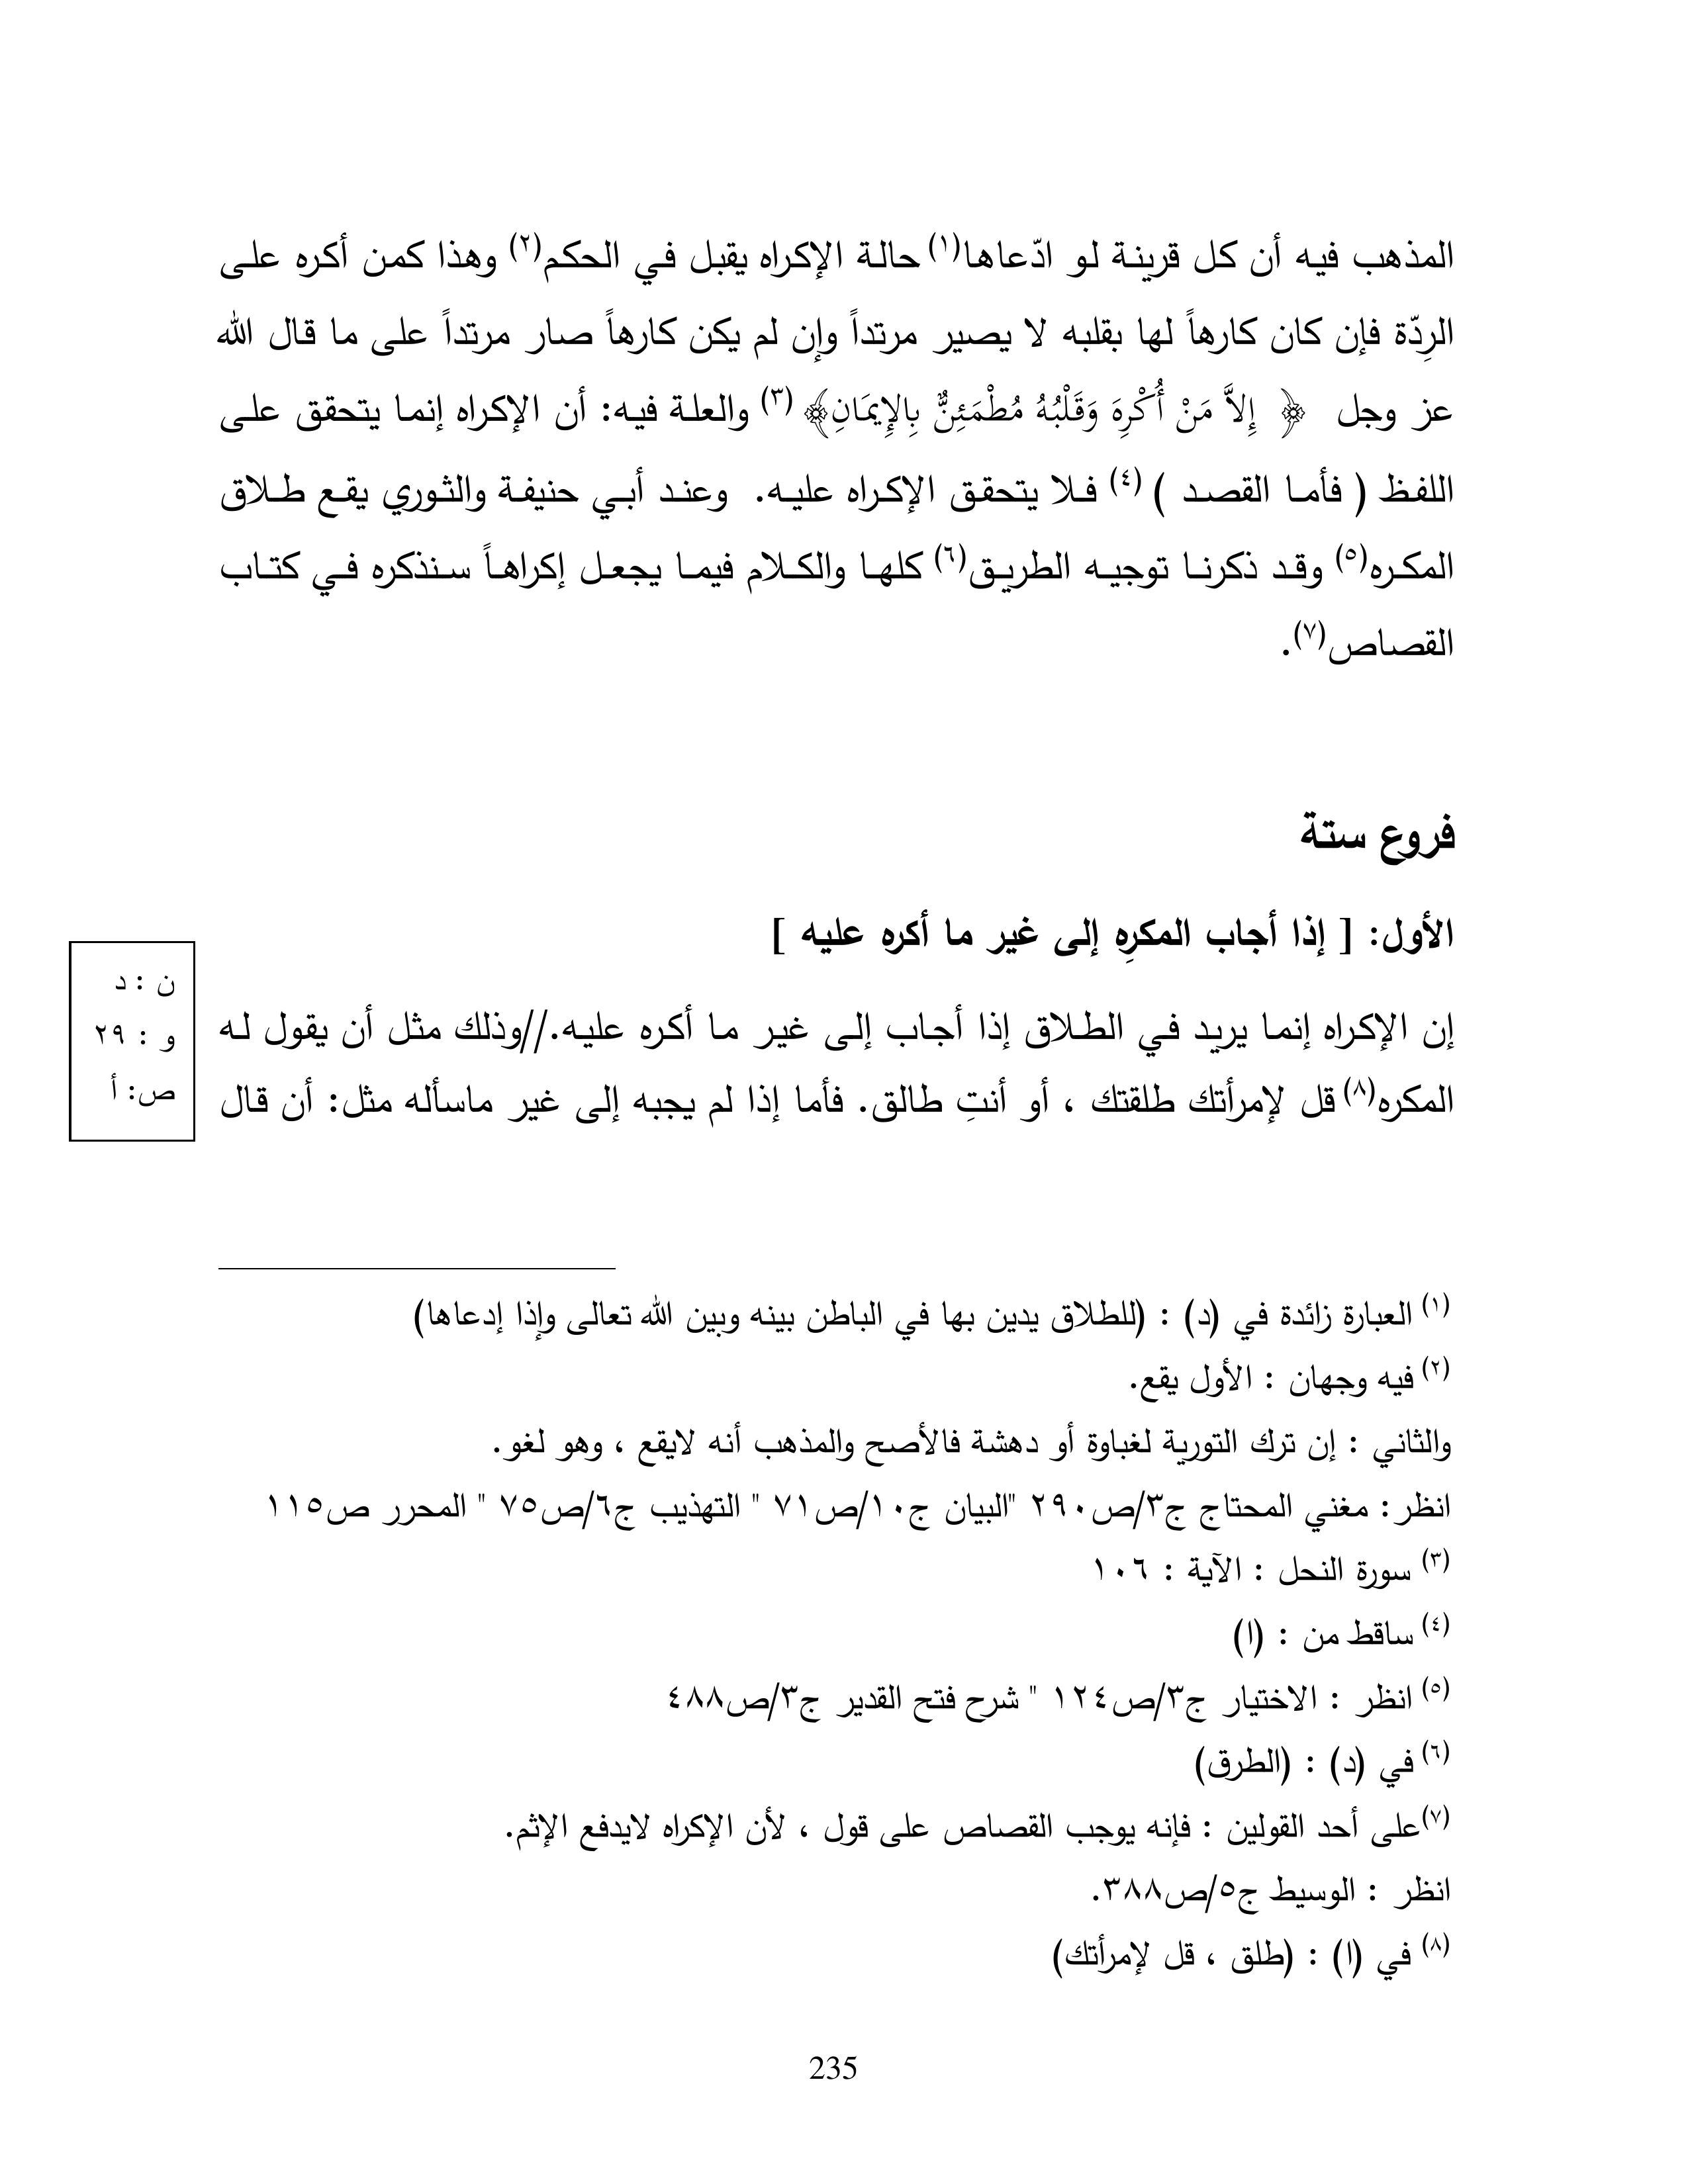 المذهب فيه أن كل قرينة لو ادّعاها(١) حالة الإكراه يقبل في الحكم(٢) وهذا كمن أكره على
الرِدّة فإن كان كارهاً لها بقلبه لا يصير مرتداً وإن لم يكن كارهاً صار مرتداً على ما قال الله
عز وجل ﴿ إِلاَّ مَنْ أُكْرِهَ وَقَلْبُهُ مُطْمَئِنٌّ بِالإِيمَانِ﴾ (٣) والعلة فيه: أن الإكراه إنما يتحقق على
اللفظ ( فأما القصد ) (٤) فلا يتحقق الإكراه عليه. وعند أبي حنيفة والثوري يقع طلاق
المكره(٥) وقد ذكرنا توجيه الطريق(٦) كلها والكلام فيما يجعل إكراهاً سنذكره في كتاب
القصاص(٧).
فروع ستة
الأول: [ إذا أجاب المكرِه إلى غير ما أكره عليه ]
إن الإكراه إنما يريد في الطلاق إذا أجاب إلى غير ما أكره عليه.//وذلك مثل أن يقول له
المكره(٨) قل لإمرأتك طلقتك ، أو أنتِ طالق. فأما إذا لم يجبه إلى غير ماسأله مثل: أن قال
ن : د
و : ٢٩
ص: أ
(١) العبارة زائدة في (د) : (للطلاق يدين بها في الباطن بينه وبين الله تعالى وإذا إدعاها)
(٢) فيه وجهان : الأول يقع.
والثاني : إن ترك التورية لغباوة أو دهشة فالأصح والمذهب أنه لايقع ، وهو لغو.
انظر: مغني المحتاج ج٣/ص٢٩٠ "البيان ج١٠/ص٧١ " التهذيب ج٦/ص٧٥ " المحرر ص١١٥
(٣) سورة النحل : الآية : ١٠٦
(٤) ساقط من : (ا)
(٥) انظر : الاختيار ج٣/ص١٢٤ " شرح فتح القدير ج٣/ص٤٨٨
(٦) في (د) : (الطرق)
(٧)على أحد القولين : فإنه يوجب القصاص على قول ، لأن الإكراه لايدفع الإثم.
انظر : الوسيط ج٥/ص٣٨٨.
(٨) في (ا) : (طلق ، قل لإمرأتك)
235